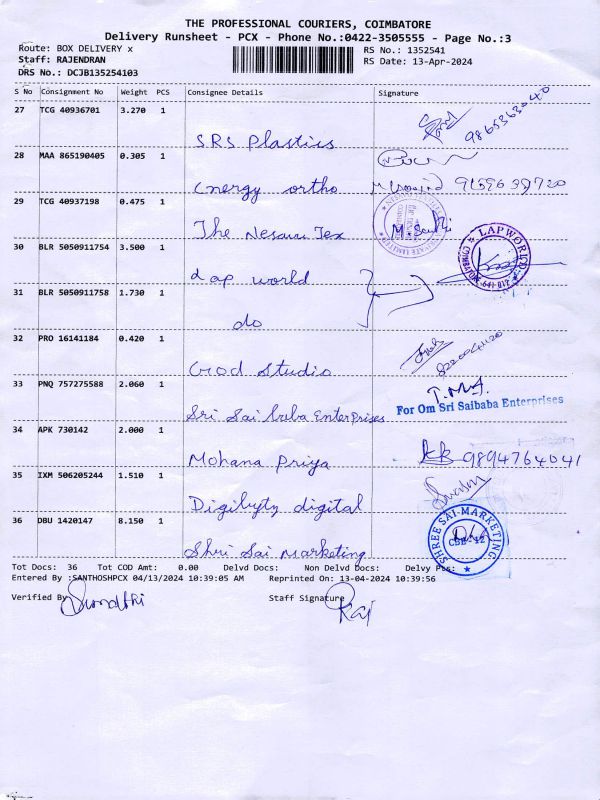 THE PROFESSIONAL COURIERS, COIMBATORE
Delivery Runsheet - PCX - Phone No.:0422-3505555 - Page No.:3
Route: BOX DELIVERY x
RS No.: 1352541
Staff: RAJENDRAN
RS Date: 13-Apr-2024
DRS No.: DCJB135254103
S No Consignment No Weight PCS Consignee Details Signature
27 TCG 40936701 3.270 1
SRS Plastics
28 MAA 865190405 0.305 1
Energy ortho 9159639720
29 TCG 40937198 0.475 1
The Nesavu Tex
30 BLR 5050911754 3.500 1
LAPWORLD
Lap world
31 BLR 5050911758 1.730 1
do
32 PRO 16141184 0.420 1
God Studio
33 PNQ 757275588 2.060 1
Sri Sai baba EnterPrises
For Om Sri Saibaba Enterprises
34 APK 730142 2.000 1
Mohana Priya 9894764041
35 IXM 506205244 1.510 1
Digibyty digital
36 DBU 1420147 8.150 1
SHREE SAI MARKETING
CBE-12
Shri Sai marketing
Tot Docs: 36 Tot COD Amt: 0.00 Delvd Docs: Non Delvd Docs: Delvy Pts:
Entered By :SANTHOSHPCX 04/13/2024 10:39:05 AM Reprinted On: 13-04-2024 10:39:56
Verified By
Staff Signature
Raj